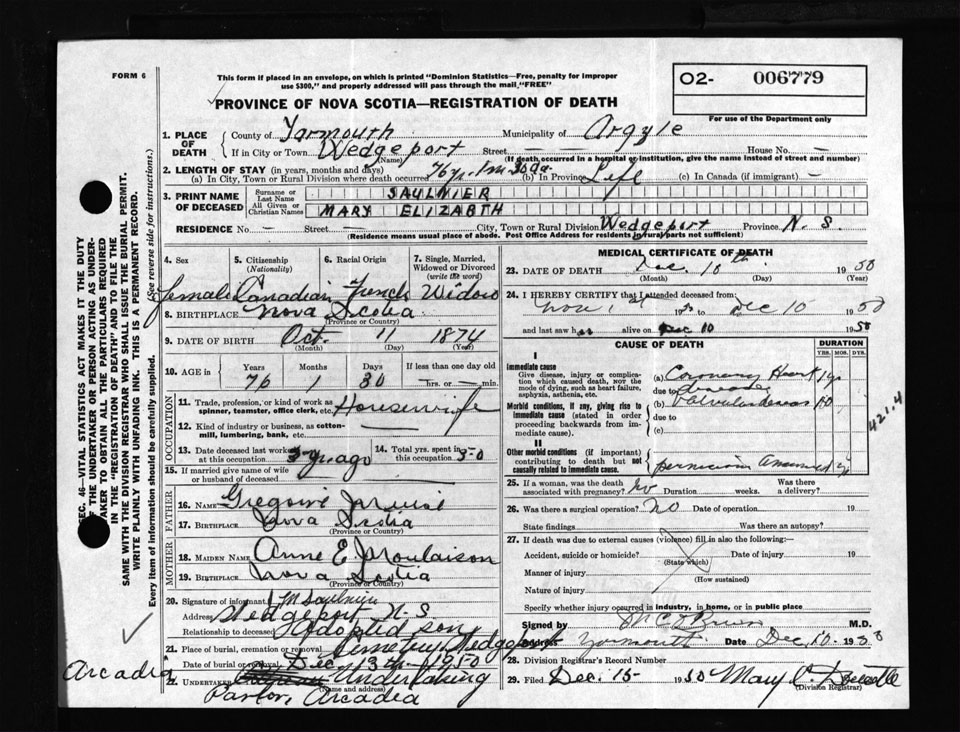 FORM 6
This form if placed in an envelope, on which is printed "Dominion Statistics—Free, penalty for improper
use $300," and properly addressed will pass through the mail, "FREE"
O2- 006779
For use of the Department only
PROVINCE OF NOVA SCOTIA—REGISTRATION OF DEATH
1. PLACE OF DEATH { County of Yarmouth Municipality of Argyle
If in City or Town Wedgeport Street — — House No. —
(Name) (If death occurred in a hospital or institution, give the name instead of street and number)
2. LENGTH OF STAY (in years, months and days)
(a) In City, Town or Rural Division where death occurred 76 yr. 1 m. 30 da. (b) In Province Life (c) In Canada (if immigrant) —
3. PRINT NAME OF DECEASED { Surname or Last Name SAULNIER
All Given or Christian Names MARY ELIZABTH
RESIDENCE No. — Street — City, Town or Rural Division Wedgeport Province N. S.
(Residence means usual place of abode. Post Office Address for residents in rural parts not sufficient)
4. Sex 5. Citizenship (Nationality) 6. Racial Origin 7. Single, Married, Widowed or Divorced (write the word)
female Canadian French Widow
8. BIRTHPLACE Nova Scotia
(Province or Country)
9. DATE OF BIRTH Oct. 11 1874
(Month) (Day) (Year)
10. AGE in { Years Months Days If less than one day old
76 1 30 — hrs. or — min.
OCCUPATION
11. Trade, profession, or kind of work as spinner, teamster, office clerk, etc. Housewife
12. Kind of industry or business, as cotton-mill, lumbering, bank, etc. —
13. Date deceased last worked at this occupation 3 yr ago 14. Total yrs. spent in this occupation 50
15. If married give name of wife or husband of deceased
FATHER
16. Name Gregoire
17. Birthplace Nova Scotia
MOTHER
18. Maiden Name Anne E Moulaison
19. Birthplace Nova Scotia
(Province or Country)
20. Signature of informant M Saulnier
Address Wedgeport N-S
Relationship to deceased Adopted son
21. Place of burial, cremation or removal Cemetery Wedgeport
Date of burial or removal Dec 13th - 1950
22. Undertaker Undertaking
(Name and address)
Arcadia
Parlor, Arcadia
SEC. 46—VITAL STATISTICS ACT MAKES IT THE DUTY
OF THE UNDERTAKER OR PERSON ACTING AS UNDER-
TAKER TO OBTAIN ALL THE PARTICULARS REQUIRED
IN THE "REGISTRATION OF DEATH" AND TO FILE THE
SAME WITH THE DIVISION REGISTRAR WHO SHALL ISSUE THE BURIAL PERMIT.
WRITE PLAINLY WITH UNFADING INK. THIS IS A PERMANENT RECORD.
Every item of information should be carefully supplied. (See reverse side for instructions.)
MEDICAL CERTIFICATE OF DEATH
23. DATE OF DEATH Dec. 10th 1950
(Month) (Day)
24. I HEREBY CERTIFY that I attended deceased from:
Nov. 1st 19 to Dec 10 1950
and last saw her alive on Dec 10 1950
CAUSE OF DEATH DURATION
YRS. MOS. DYS.
I
Immediate cause
Give disease, injury or complication which caused death, not the mode of dying, such as heart failure, asphyxia, asthenia, etc.
(a) Coronary Heart 1 yr
due to disease
Morbid conditions, if any, giving rise to immediate cause (stated in order proceeding backwards from immediate cause).
(b) Valvular disease 10
due to
(c)
II
Other morbid conditions (if important) contributing to death but not causally related to immediate cause.
pernicious Anaemia
421.4
25. If a woman, was the death associated with pregnancy? No Duration weeks. Was there a delivery?
26. Was there a surgical operation? NO Date of operation 19
State findings Was there an autopsy?
27. If death was due to external causes (violence) fill in also the following:
Accident, suicide or homicide? Date of injury 19
(State which)
Manner of injury
(How sustained)
Nature of injury
Specify whether injury occurred in industry, in home, or in public place
Signed by M.D.
Address Yarmouth Date Dec. 10 19
28. Division Registrar's Record Number
29. Filed Dec. 15- 1950 Mary
(Division Registrar)